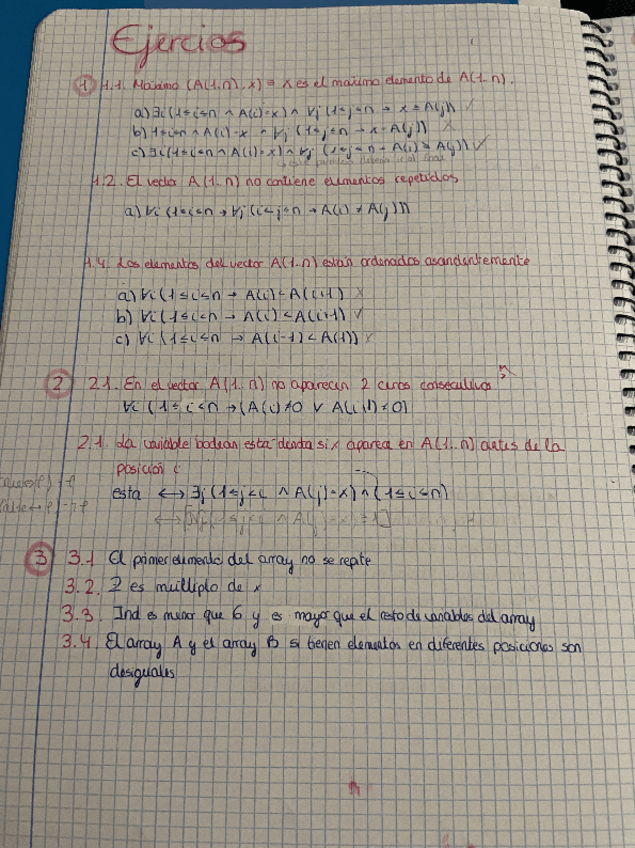 Ejercios
1 1.1. Maximo (A(1..n), x) ≡ x es el maximo elemento de A(1..n).
a) ∃i (1≤i≤n ∧ A(i)=x) ∧ ∀j (1≤j≤n → x≥A(j)) ✓
b) 1≤i≤n ∧ A(i)=x ∧ ∀j (1≤j≤n → x≥A(j)) ✗
c) ∃i (1≤i≤n ∧ A(i)=x) ∧ ∀j (1≤j≤n → A(i)≥A(j)) ✓
1.2. El vector A(1..n) no contiene elementos repetidos
a) ∀i (1≤i≤n → ∀j (i<j≤n → A(i)≠A(j)))
1.4. Los elementos del vector A(1..n) están ordenados asandentemente
a) ∀i (1≤i≤n → A(i)<A(i+1) ✗
b) ∀i (1≤i<n → A(i)<A(i+1) ✓
c) ∀i (1≤i≤n → A(i-1)<A(i)) ✗
2 2.1. En el vector A(1..n) no aparecen 2 ceros consecutivos
∀i (1≤i<n → (A(i)≠0 ∨ A(i+1)≠0)
2.1. La variable boolean esta denota si x aparece en A(1..n) antes de la
posición i
esta ↔ ∃j (1≤j<i ∧ A(j)=x) ∧ (1≤i≤n)
3 3.1 El primer elemento del array no se repite
3.2. Z es multiplo de x
3.3 Ind es menor que 6 y es mayor que el resto de variables del array
3.4 El array A y el array B si tienen elementos en diferentes posiciones son
desiguales